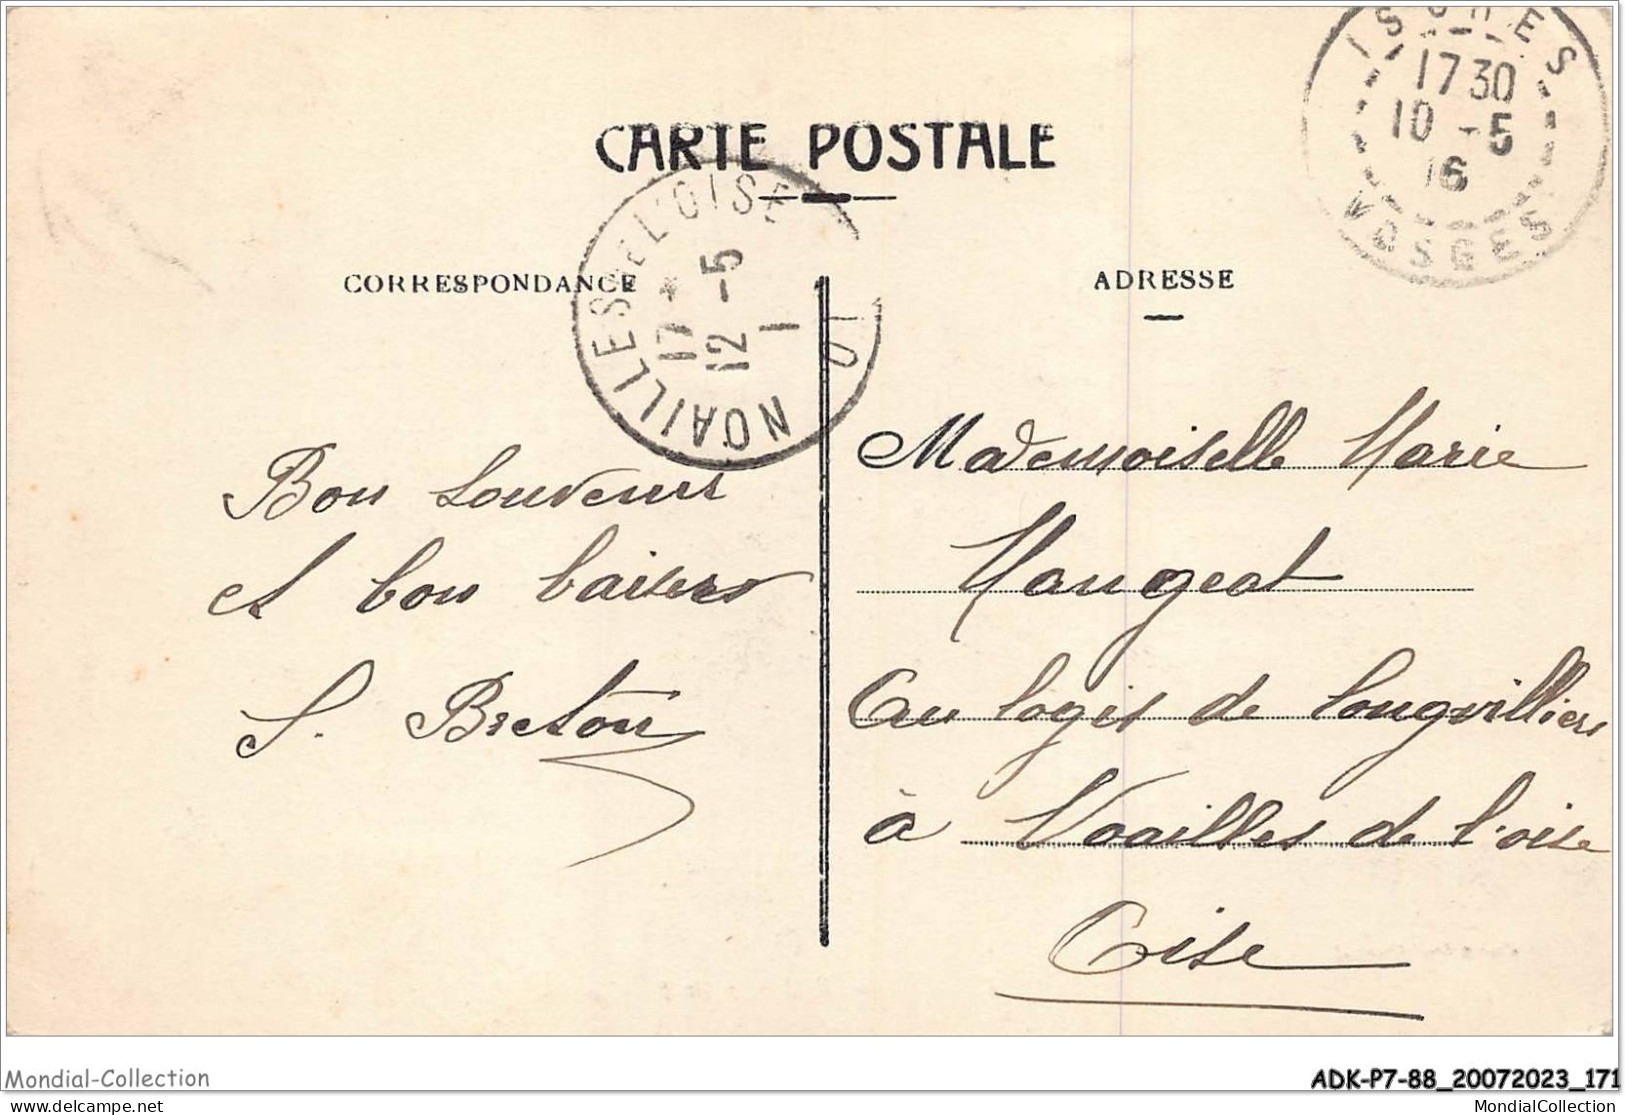 ISCHES
1730
10 - 5
16
VOSGES
CARTE POSTALE
NOAILLES de L'OISE
17 *
12 - 5
1
OI
CORRESPONDANCE
ADRESSE
Bon Souvenir
et bon baisers
S. Breton
Mademoiselle Marie
Maugeat
Au logis de Longvilliers
à Noailles de l'oise
Oise
Mondial-Collection
ADK-P7-88_20072023_171
mondialcollection.com
MondialCollection